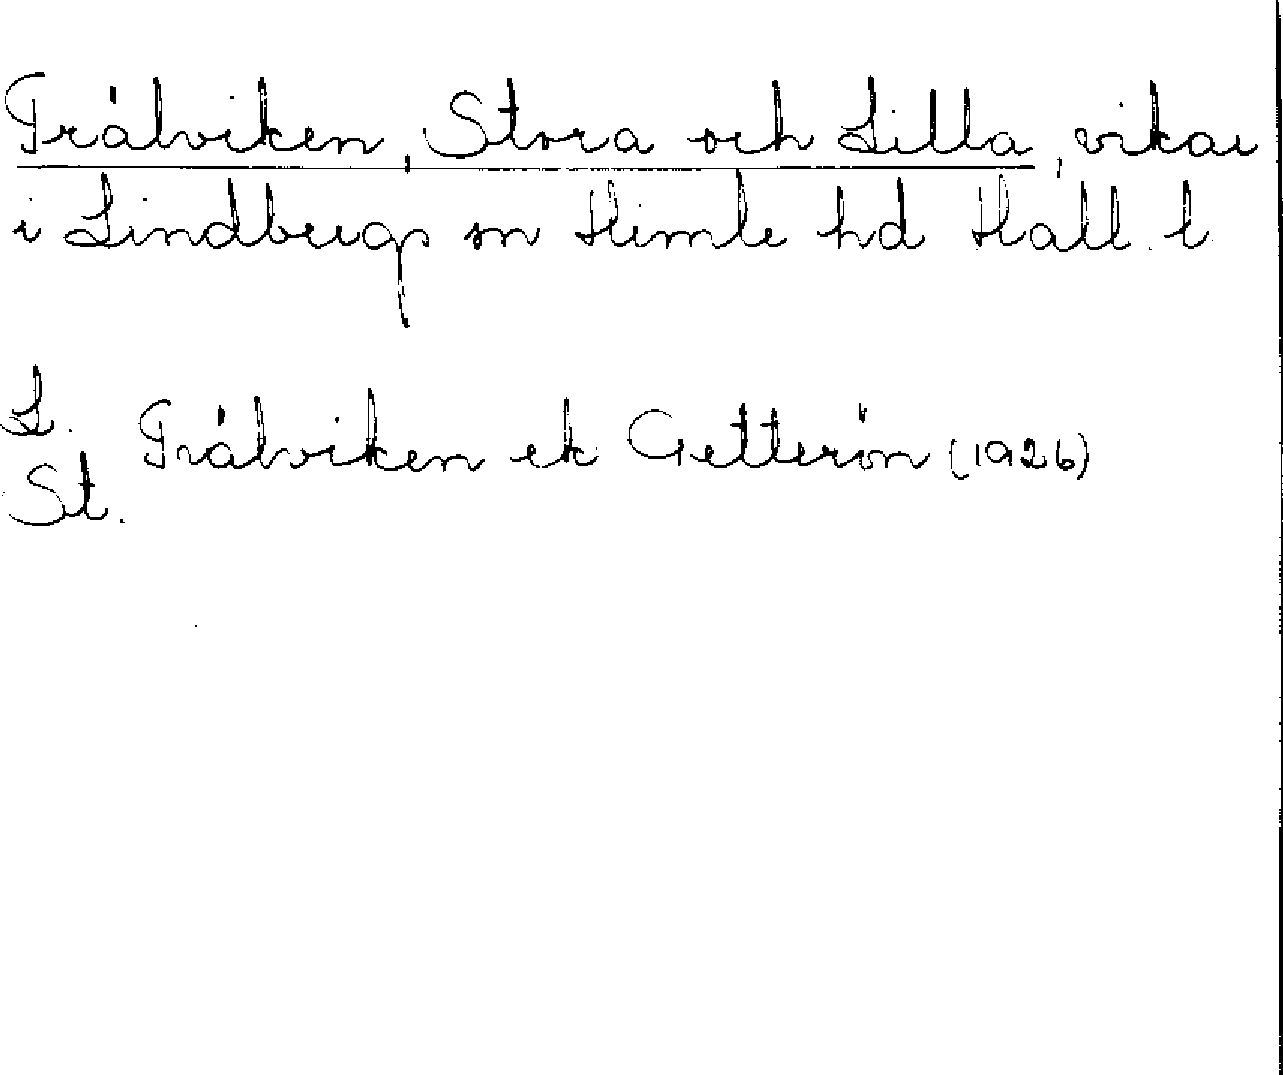 Trälviken, Stora och Lilla, vikar
i Lindbergs sn Himle hd Hall. l
L.
Trälviken ek Getterön (1926)
St.